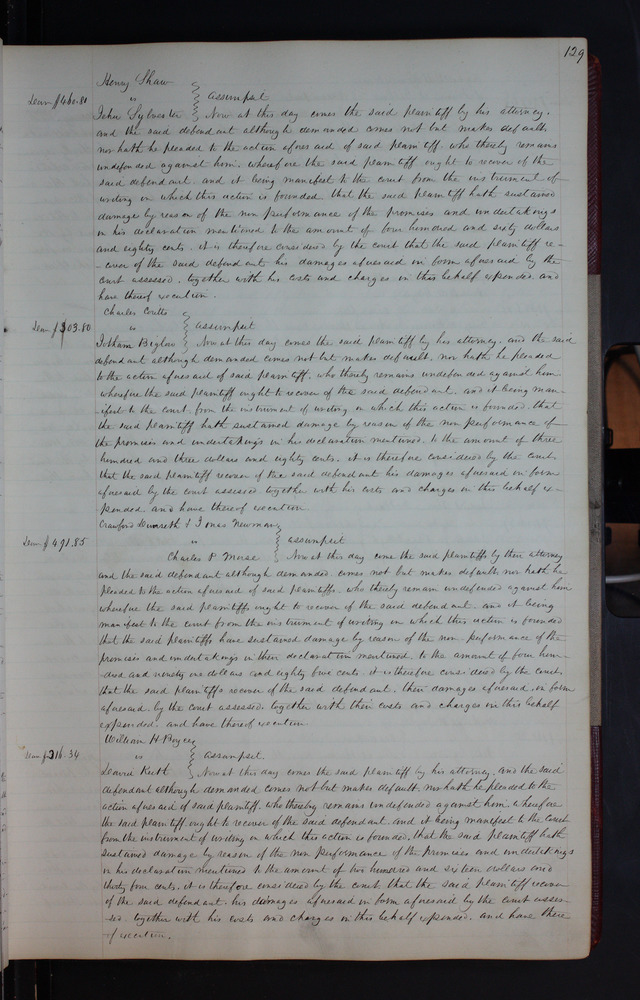 129
Henry Shaw
Dam $460.80 vs } assumpsit
John Sylvester } Now at this day comes the said plaintiff by his attorney,
and the said defendant although demanded comes not but makes default
nor hath he pleaded to the action aforesaid of said plaintiff, who thereby remains
undefended against him. wherefore the said plaintiff ought to recover of the
said defendant. and it being manifest to the court from the instrument of
writing on which this action is founded, that the said plaintiff hath sustained
damage by reason of the non performance of the promises and undertakings
in his declaration mentioned to the amount of four hundred and sixty dollars
and eighty cents. it is therefore considered by the court that the said plaintiff re-
-cover of the said defendant his damages aforesaid in form aforesaid by the
court assessed, together with his costs and charges in this behalf expended. and
have thereof execution.
Charles Coutts
Dam $303.80 vs } assumpsit
Jotham Biglow } Now at this day comes the said plaintiff by his attorney. and the said
defendant although demanded comes not but makes default. nor hath he pleaded
to the action aforesaid of said plaintiff. who thereby remains undefended against him
wherefore the said plaintiff ought to recover of the said defendant. and it being man-
-ifest to the court from the instrument of writing on which this action is founded. that
the said plaintiff hath sustained damage by reason of the non performance of
the promises and undertakings in his declaration mentioned. to the amount of three
hundred and three dollars and eighty cents. it is therefore considered by the court
that the said plaintiff recover of the said defendant his damages aforesaid in form
aforesaid by the court assessed together with his costs and charges in this behalf ex-
-pended. and have thereof execution
Crawford & Jonas Newman
Dam $491.85 vs } assumpsit
Charles P. Morse } Now at this day come the said plaintiffs by their attorney
and the said defendant although demanded comes not but makes default nor hath he
pleaded to the action aforesaid of said plaintiffs. who thereby remain undefended against him
wherefore the said plaintiffs ought to recover of the said defendant. and it being
manifest to the court from the instrument of writing on which this action is founded
that the said plaintiffs have sustained damage by reason of the non performance of the
promises and undertakings in their declaration mentioned. to the amount of four hun-
-dred and ninety one dollars and eighty five cents. it is therefore considered by the court
that the said plaintiffs recover of the said defendant. their damages aforesaid in form
aforesaid. by the court assessed. together with their costs and charges in this behalf
expended. and have thereof execution
William H. Boyce
Dam $216.34 vs } assumpsit.
David Keith } Now at this day comes the said plaintiff by his attorney. and the said
defendant although demanded comes not but makes default. nor hath he pleaded to the
action aforesaid of said plaintiff. who thereby remains undefended against him. wherefore
the said plaintiff ought to recover of the said defendant. and it being manifest to the court
from the instrument of writing on which this action is founded. that the said plaintiff hath
sustained damage by reason of the non performance of the promises and undertakings
in his declaration mentioned to the amount of two hundred and sixteen dollars and
thirty four cents. it is therefore considered by the court that the said plaintiff recover
of the said defendant. his damages aforesaid in form aforesaid by the court asses-
-sed. together with his costs and charges in this behalf expended. and have there
-of execution.